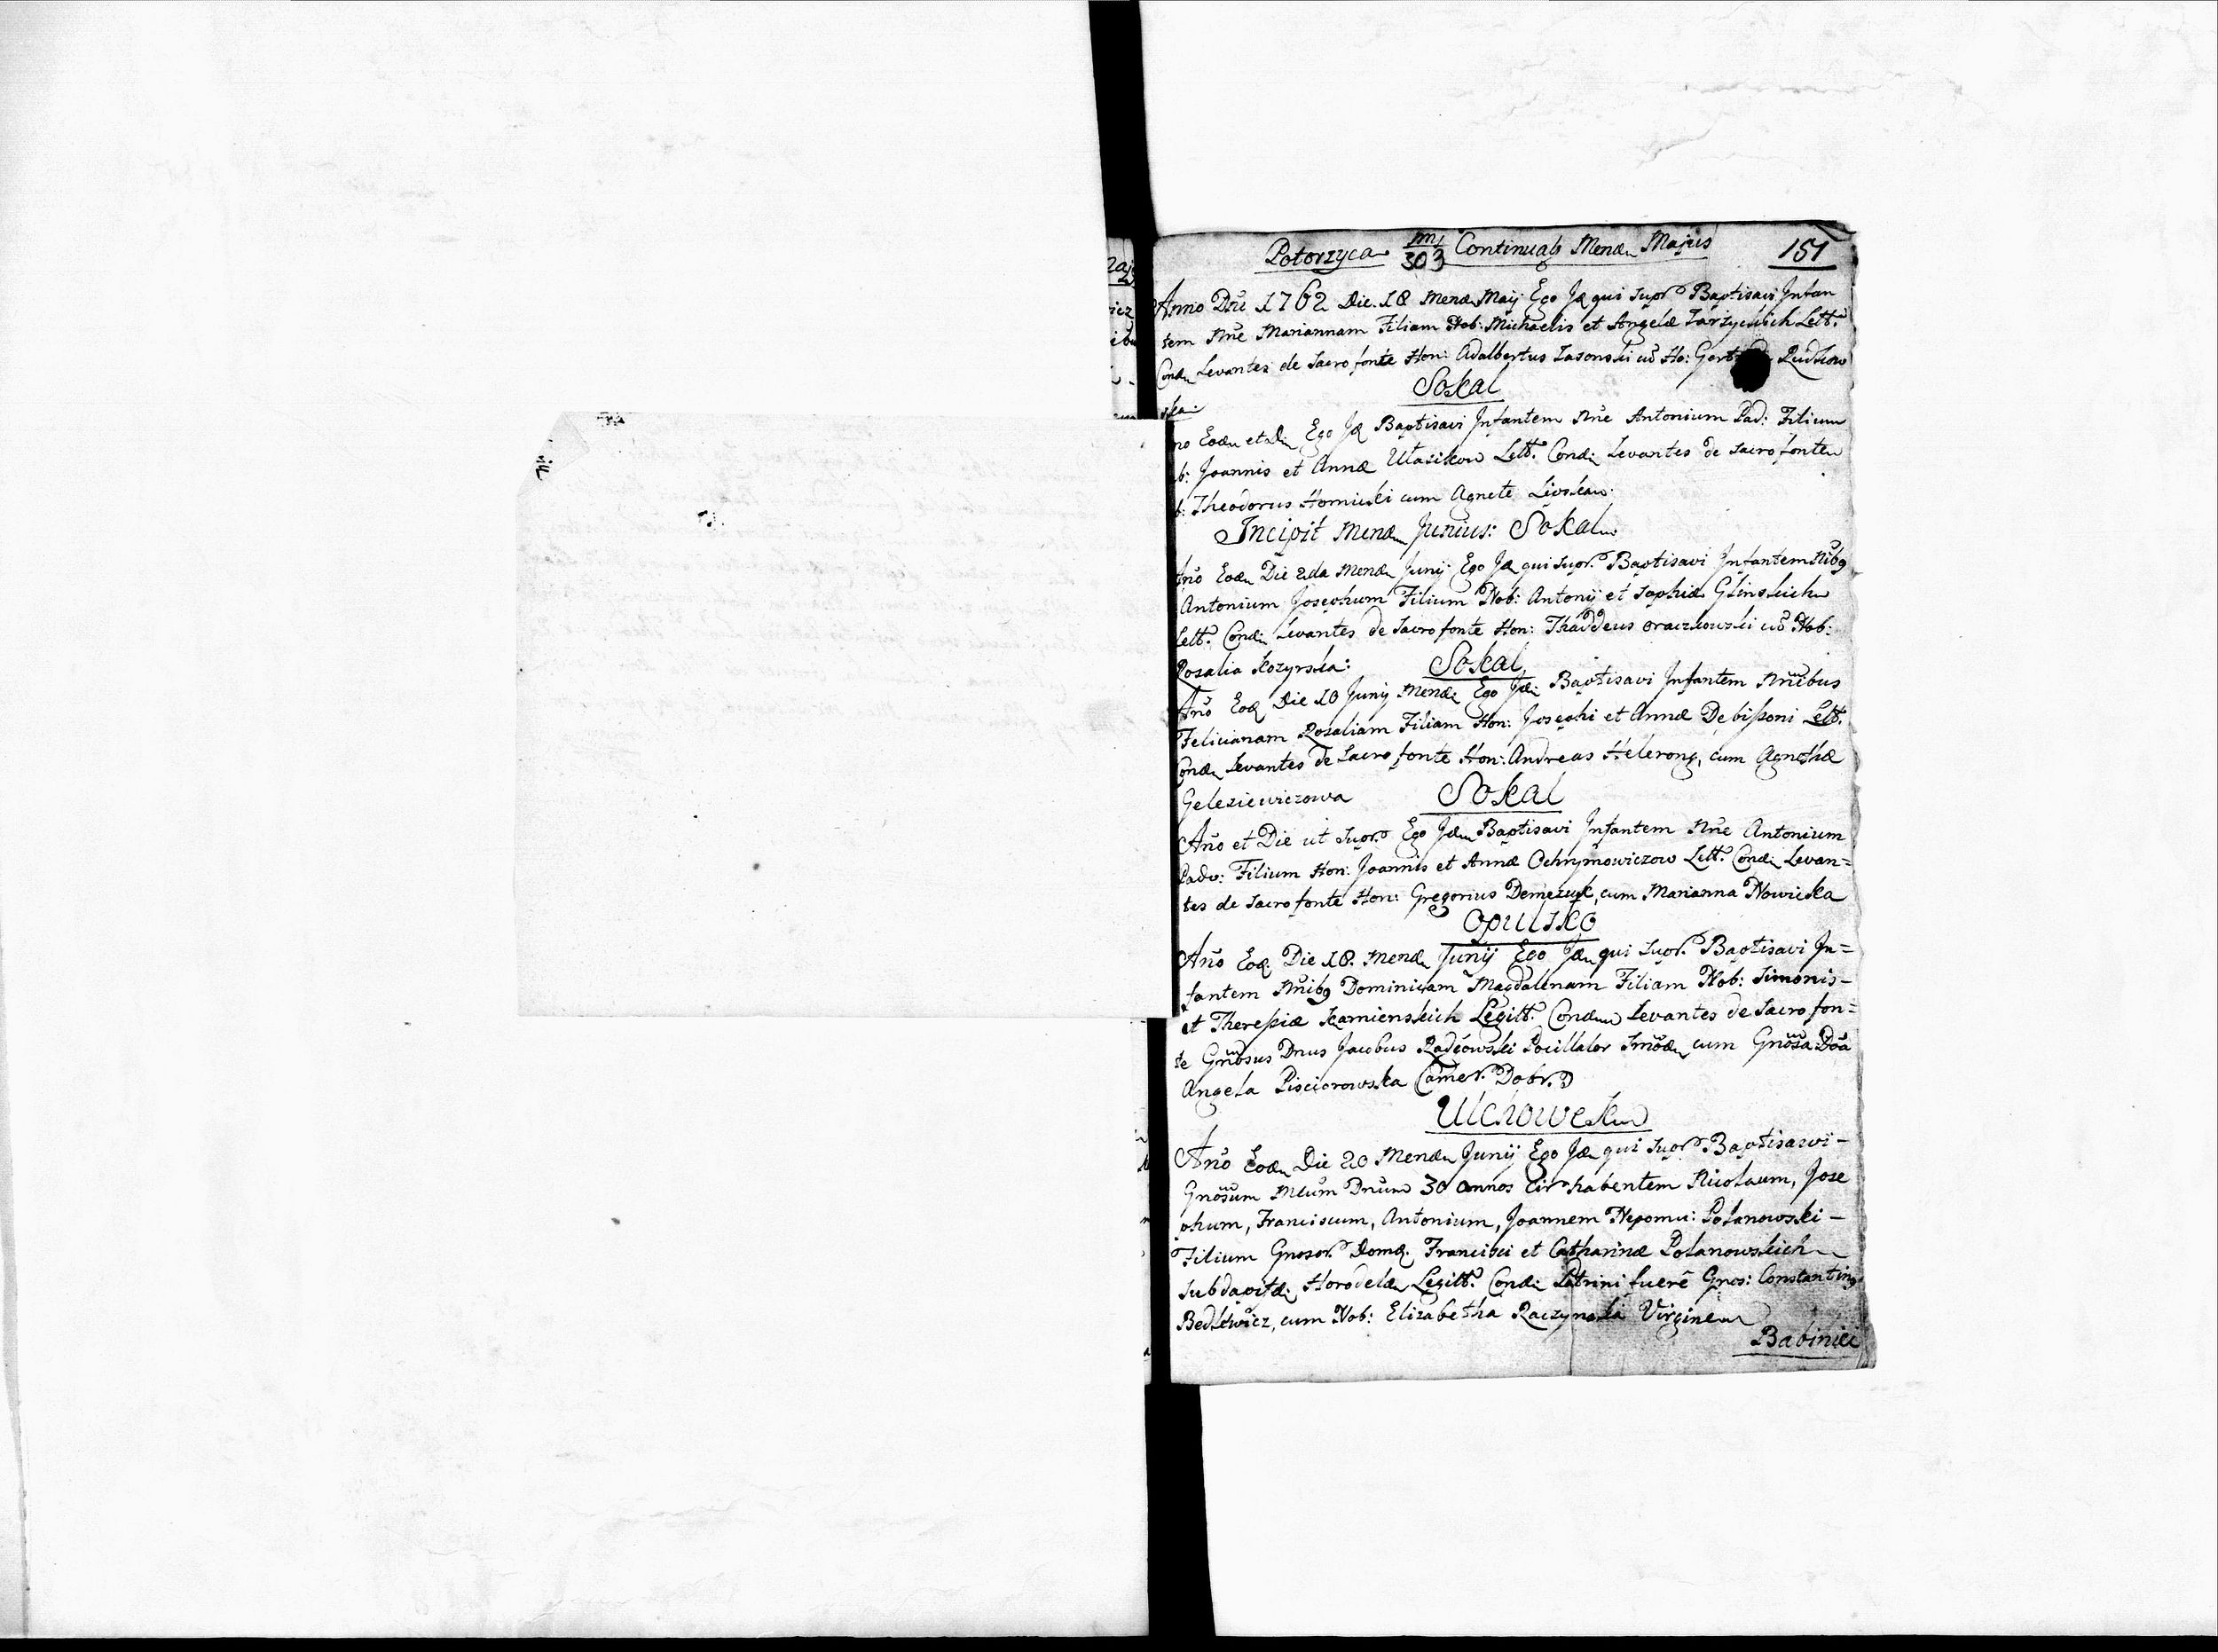 Potorzyca 303 Continuat Mensis Majus 151
Anno Dni 1762 Die 18 Mensis Maij Ego Id qui supr Baptisavi Infan
tem Nne Mariannam Filiam Nob: Michaelis et Angelæ Larzyckich Lett.
Condn Levantes de Sacro fonte Hon: Adalbertus Jasonski cũ Ho: Rudkow
ska:
Sokal
no Eodn et Die Ego Id Baptisavi Infantem Nne Antonium Pad: Filium
b: Joannis et Annæ Ulasikow Lett. Condn Levantes de Sacro fonte
b: Theodorus Hornicki cum Agnete Livskaw.
Incipit Mensis Junius: Sokal
Ano Eodn Die 2da Mensis Junij Ego Id qui supr. Baptisavi Infantem Nibg
Antonium Josephum Filium Nob: Antonij et Sophiæ Glinskich
Lett. Condn Levantes de Sacro fonte Hon: Thaddeus Oraczkowski cũ Nob:
Rosalia Kozyrska: Sokal
Ano Eod Die 10 Junij Mensis Ego Idn Baptisavi Infantem Nnibus
Felicianam Rosaliam Filiam Hon: Josephi et Annæ Debissoni Lett.
Condn Levantes de Sacro fonte Hon: Andreas Helerong, cum Agnethæ
Geleziewiczowa Sokal
Ano et Die ut Supr. Ego Idn Baptisavi Infantem Nne Antonium
Padv: Filium Hon: Joannis et Annæ Ochrymowiczow Lett. Condn Levan=
tes de Sacro fonte Hon: Gregorius Demczuk, cum Marianna Nowicka
Opulsko
Ano Eod Die 18. Mensis Junij Ego Idn qui supr. Baptisavi In=
fantem Nnibg Dominicam Magdalenam Filiam Nob: Simonis-
et Theresiæ Kamienskich Legitt. Condn Levantes de Sacro fon=
te Gnosus Dnus Jacobus Radeowski Pocillator cum Gnosa Dna
Angela Pisciorowska Camer. Dobr.
Ulchowek
Ano Eodn Die 20 Mensis Junij Ego Idn qui supr Baptisavi-
Gnosum Meum Dnum 30 annos cir habentem Nicolaum, Jose
phum, Franciscum, Antonium, Joannem Nepomu: Polanowski-
Filium Gnosor Domd. Francisci et Catharinæ Polanowskich
Subdapifd. Horodeln Legitt. Condn Patrini fuere Gnos: Constanting
Bedlewicz, cum Nob: Elizabetha Raczynska Virgine
Babinici